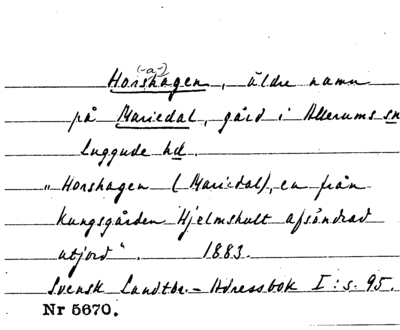 (-a-)
Horshagen, äldre namn
på Mariedal, gård i Allerums sn
Luggude hd.
"Horshagen (Mariedal), en från
Kungsgården Hjelmshult afsöndrad
utjord". 1883.
Svensk Landtbr.-Adressbok I: s. 95.
Nr 5670.